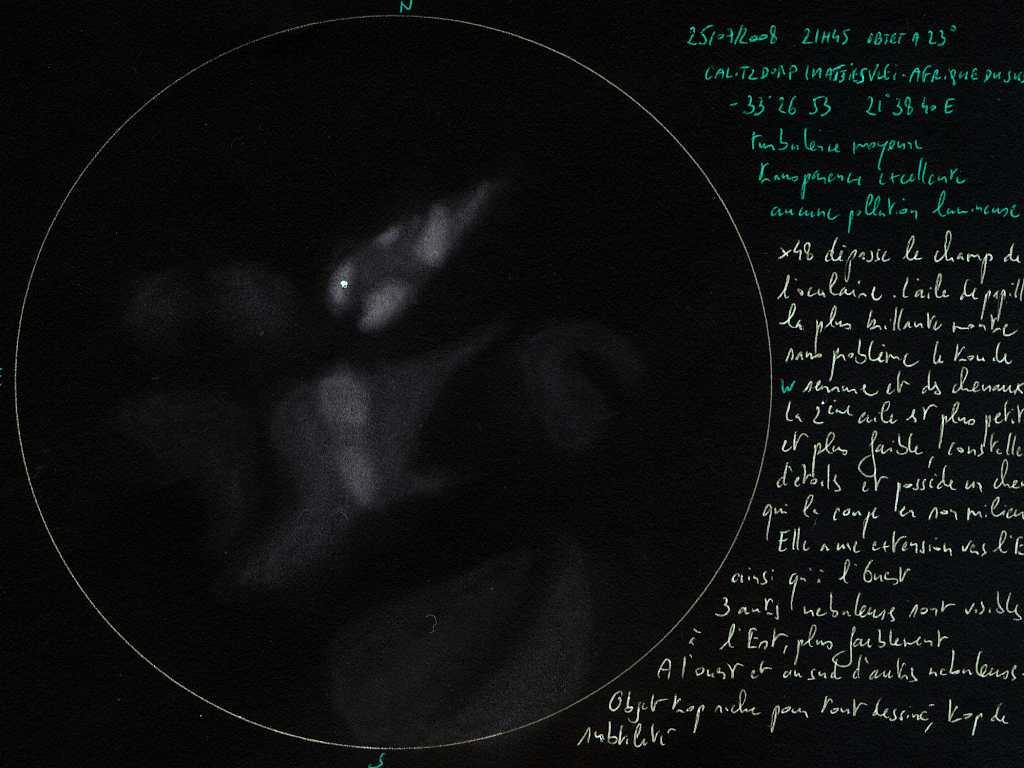 N
25/07/2008 21H45 OBJET A 23°
CALITZDORP - AFRIQUE DU SUD
-33°26 53 21°38 40 E
turbulence moyenne
transparence excellente
aucune pollution lumineuse
x48 dépasse le champ de
l'oculaire. L'aile de papill
la plus brillante montre
sans problème le trou de
E
W
serrure et des chenaux
la 2ème aile est plus petit
et plus faible, constellé
d'étoiles et possède un chen
qui la coupe en son milieu
Elle a une extension vers l'E
ainsi qu'à l'Ouest
3 autres nébuleuses sont visibles
à l'Est, plus faiblement
A l'ouest et au sud d'autres nébuleuses.
Objet trop riche pour tout dessiner, trop de
subtilité
S